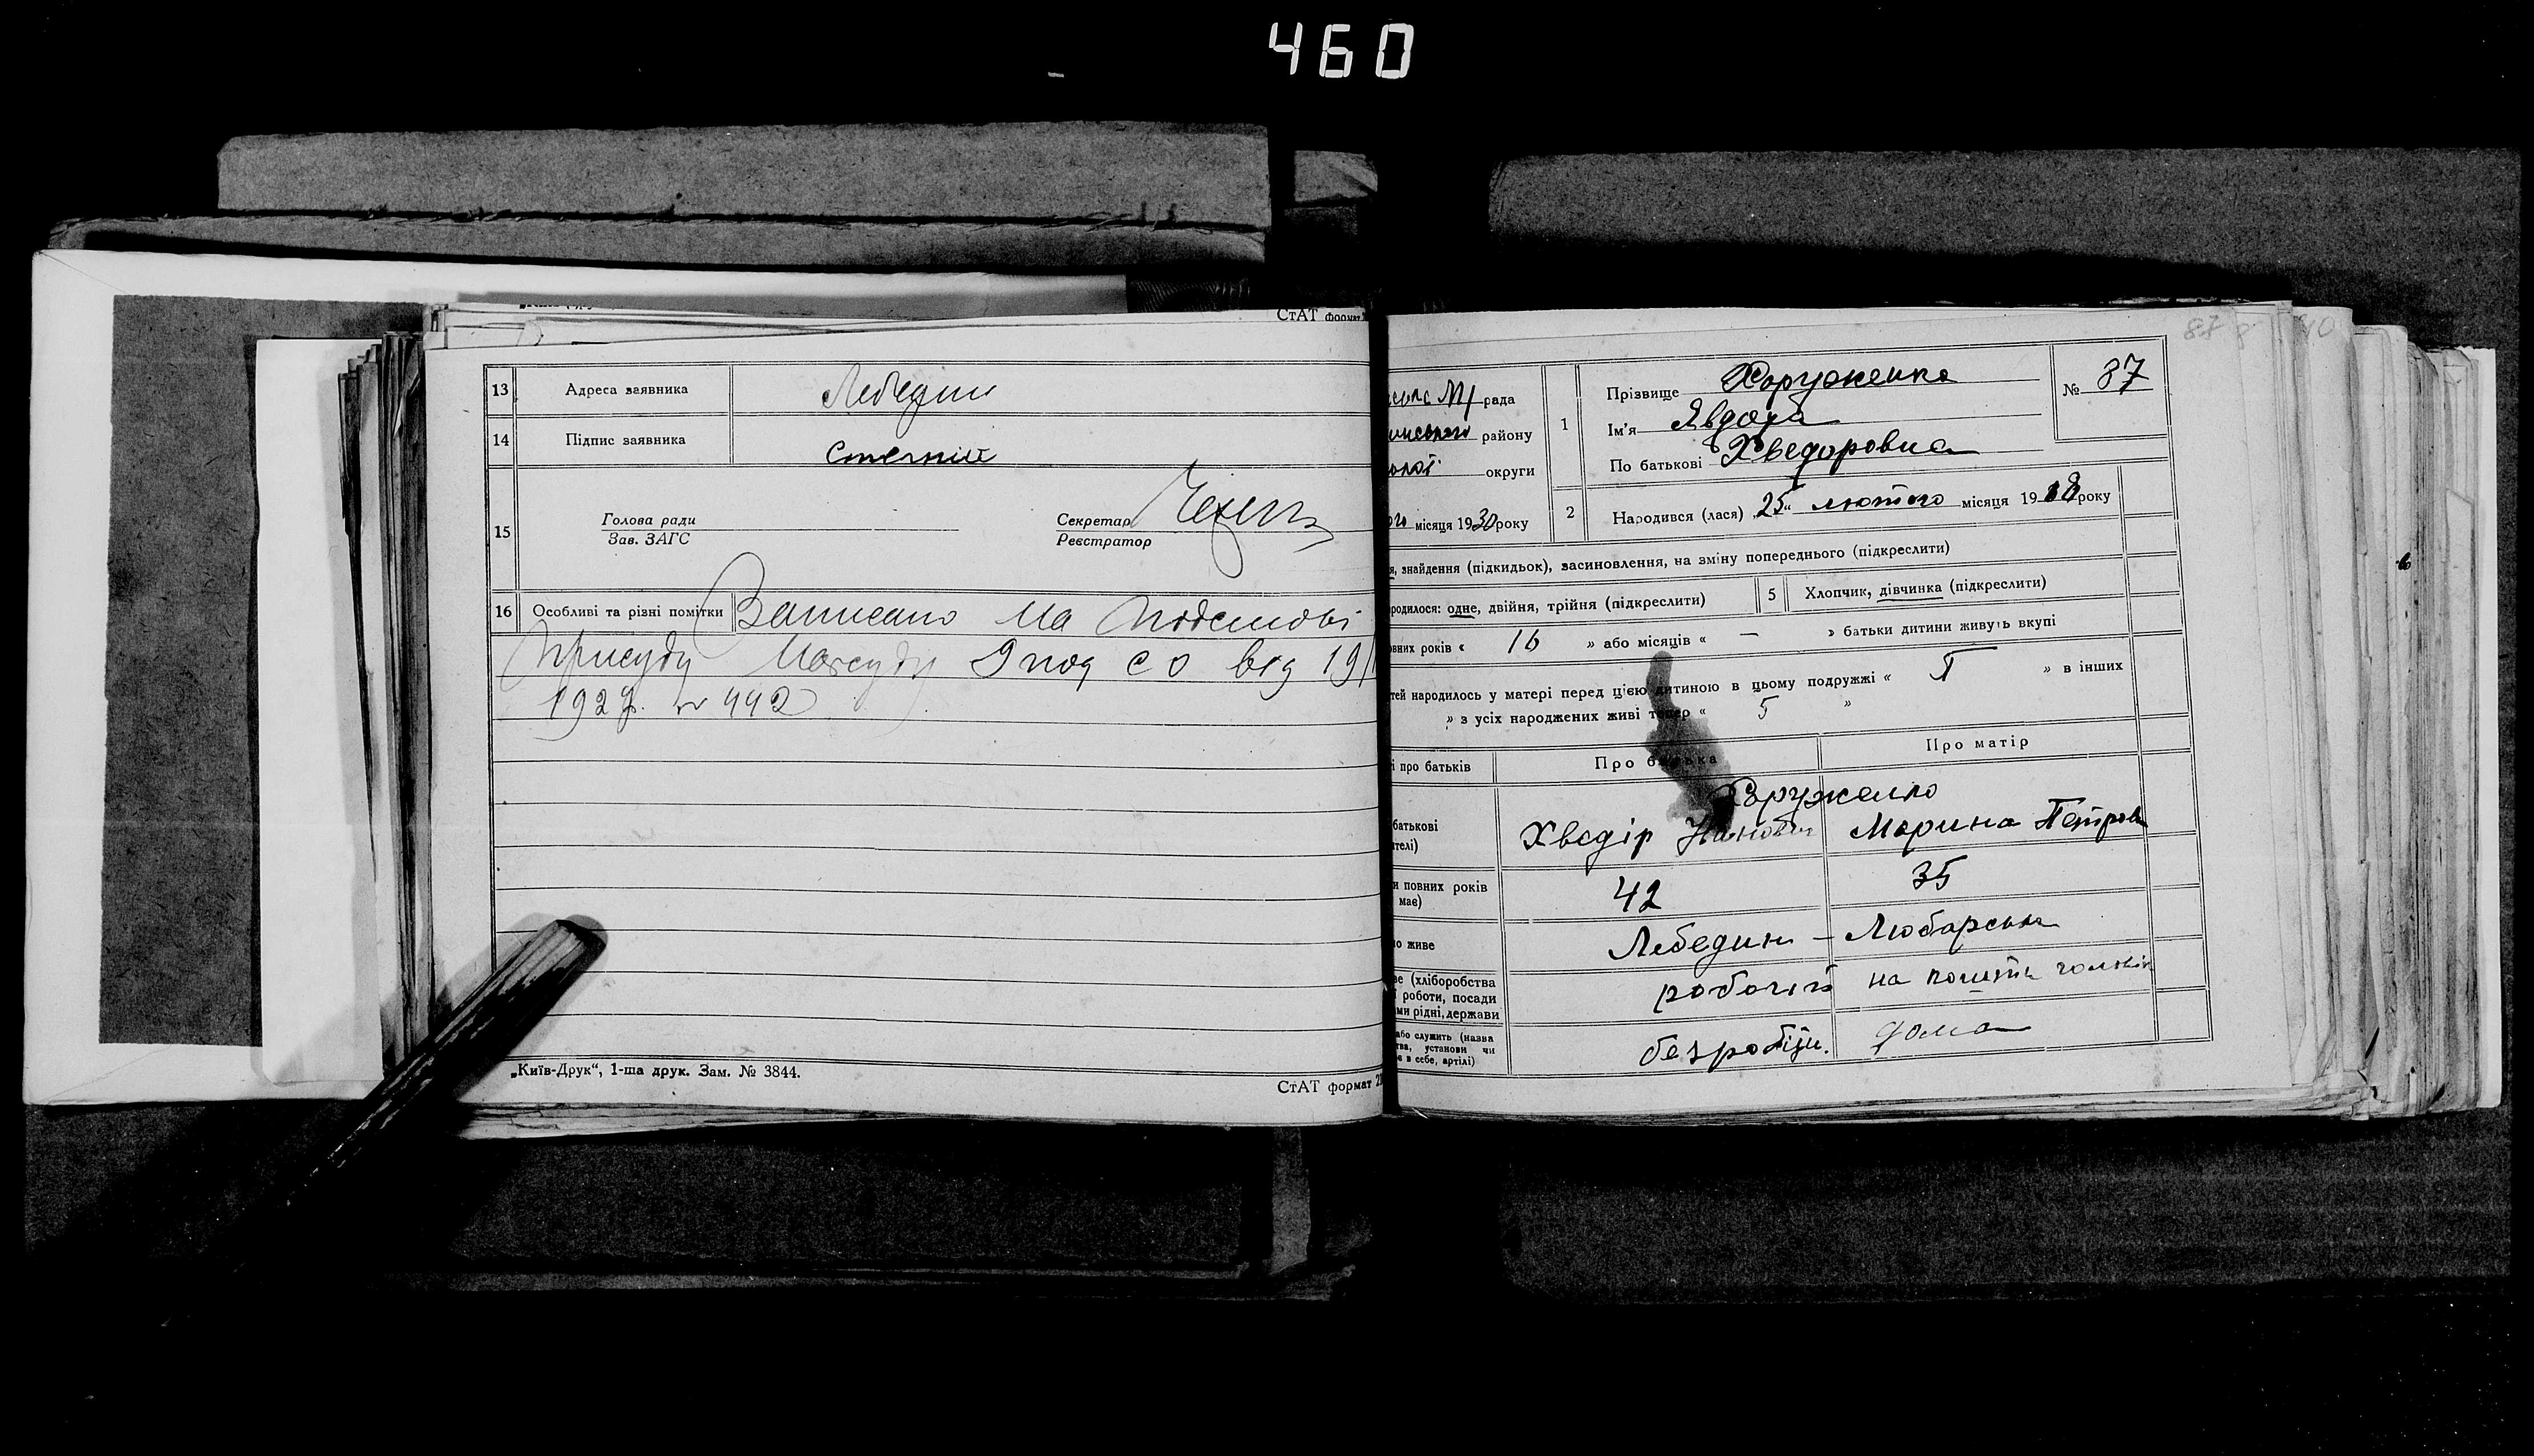 460
СтАТ формат
13 Адреса заявника Лебедин
14 Підпис заявника
15 Голова ради
Зав. ЗАГС
Секретар
Реєстратор
16 Особливі та різні помітки Записано на подставі
присуду Нарсуду від 19
442
„Київ-Друк“, 1-ша друк. Зам. № 3844.
СтАТ формат
рада
району
округи
місяця 1930 року
1 Прізвище Харуженко
Ім'я Явдоха
По батькові Хведоровна
№ 87
2 Народився (лася) „25“ лютого місяця 19 року
знайдення (підкидьок), засиновлення, на зміну попереднього (підкреслити)
родилося: одне, двійня, трійня (підкреслити)
5 Хлопчик, дівчинка (підкреслити)
вних років « 16 » або місяців « — » батьки дитини живуть вкупі
тей народилось у матері перед цією дитиною в цьому подружжі « » в інших
» з усіх народжених живі тепер « 5 »
про батьків Про батька Про матір
Харуженко
батькові
Хведір Марина Петров
и повних років
має)
42 35
живе
Лебедин — Любарська
(хліборобства
роботи, посади
ми рідні, держави
робочий на
або служить (назва
тва, установи чи
в себе, артілі)
безробітн. дома